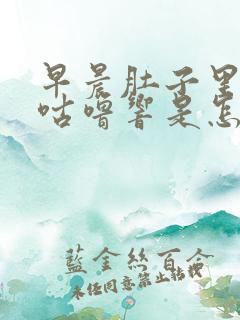 早晨肚子里
咕噜響是怎
藍金絲百合
未经同意禁止转载